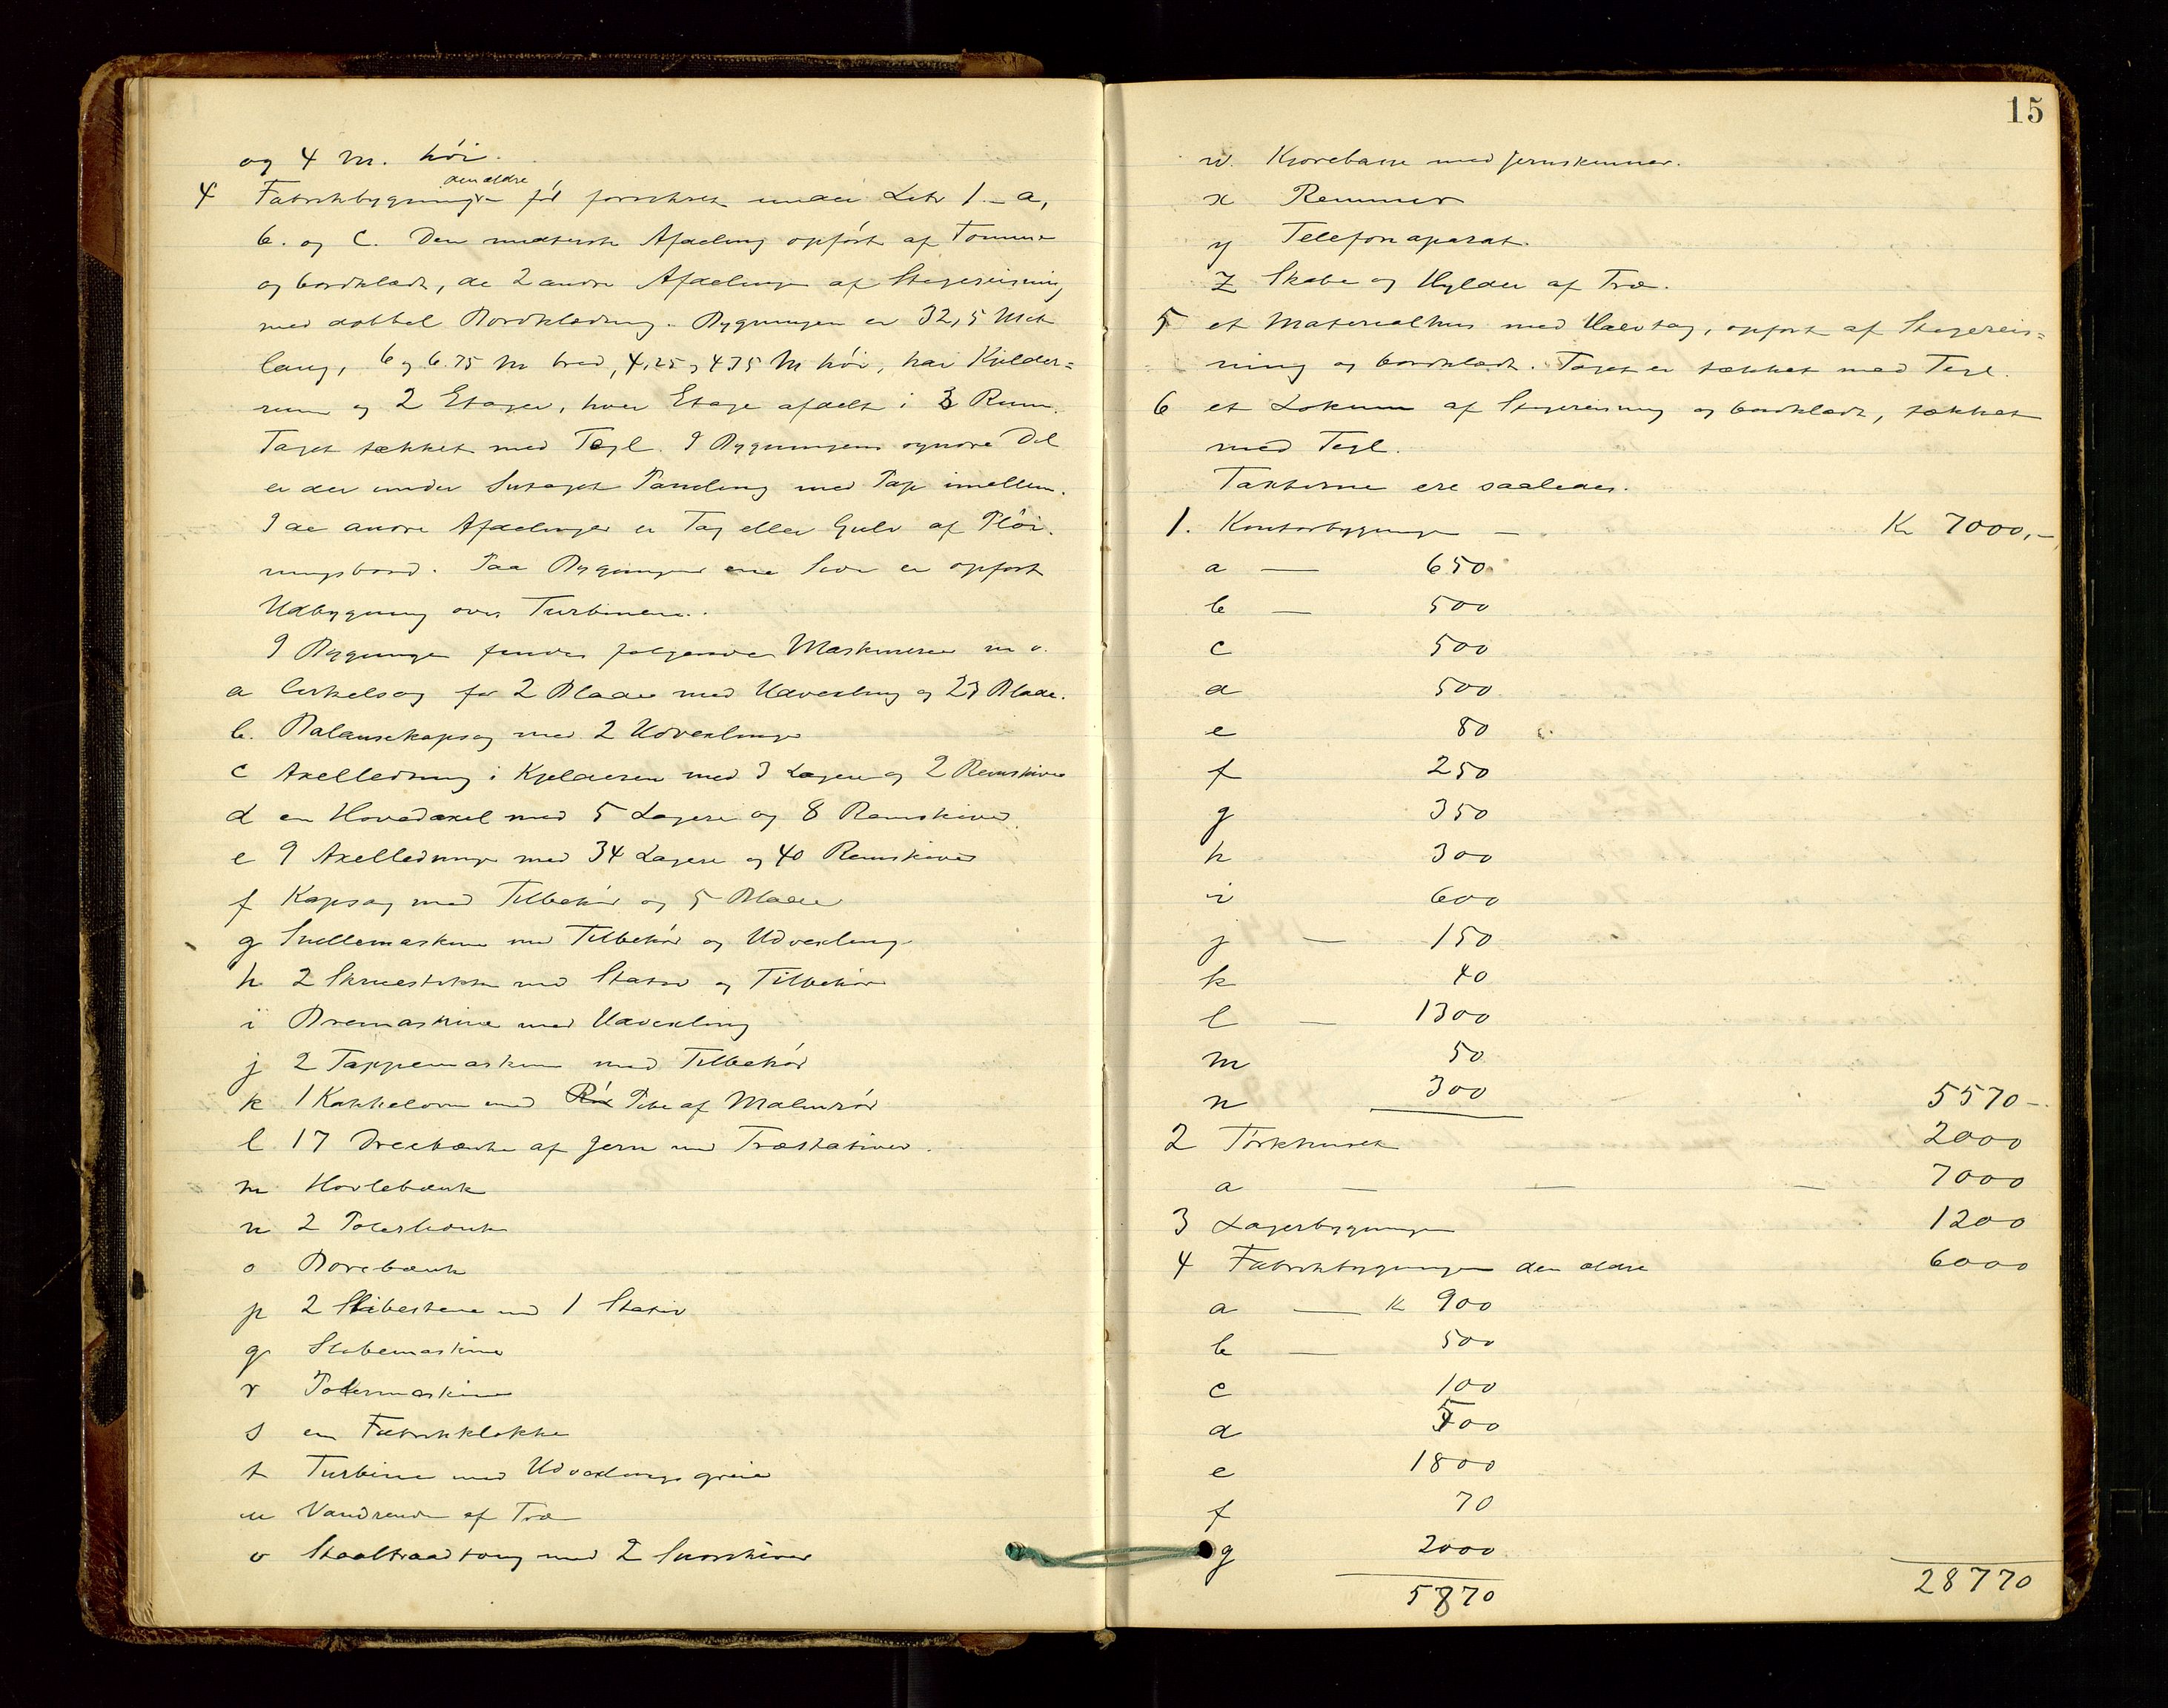 og 4 M. høi.
4 Fabrikbygningen den ældre før forsikret under Litr 1 - a,
b. og c. Den nederste Afdeling opført af Tømmer
og bordklædt, de 2 andre Afdelinger af Stagereisning
med dobbel Bordklædning. Bygningen er 32,5 Met
lang, 6 og 6.75 M bred, 4,25 og 4.75 M høi, har Kjelder=
rum og 2 Etager, hver Etage afdelt i 3 Rum.
Taget tækket med Tegl. I Bygningens øvre Del
er der under Sutaget Paneling med Pap imellem.
I de andre Afdelinger er Tag eller Gulv af Pløi-
ningsbord. Paa Bygningens ene Side er opført
Udbygning over Turbinen.
I Bygningen findes følgende Maskinerier m v.
a Cirkelsag for 2 Blade med Udvexling og 23 Blade.
b. Balansekapsag med 2 Udvexlinger
c Axelledning i Kjelderen med 3 Lagere og 2 Remskiver
d en Hovedaxel med 5 Lagere og 8 Remskiver
e 9 Axelledninger med 34 Lagere og 40 Remskiver
f Kapsag med Tilbehør og 5 Blade
g Snellemaskine med Tilbehør og Udvexling
h 2 Skruestikker med Stativ og Tilbehør
i Boremaskine med Udvexling
j 2 Tappemaskiner med Tilbehør
k 1 Kakkelovn med Rør Pibe af Malmrør
l 17 Dreiebænke af Jern med Træstativer.
m Høvlebænk
n 2 Polerbænke
o Borebænk
p 2 Slibestene med 1 Stativ
q Stabemaskine
r Polermaskine
s en Fabrikklokke
t Turbine med Udvexlingsgreie
u Vandrende af Træ
v Staaltraadtoug med 2 Snorskiver
15
w. Kjørebane med Jernskinner.
x Remmer
y Telefonaparat.
z Skabe og Hylder af Træ.
5 et Materialhus med Halvtag, opført af Stagereis=
ning og bordklædt. Taget er tækket med Tegl.
6 et Lokum af Stagereisning og bordklædt, tækket
med Tegl.
Taxterne ere saaledes.
1. Kontorbygningen — Kr 7000,-
a — 650
b — 500
c 500
d 500
e 80
f 250
g 350
h 300
i 600
j — 150
k 40
l — 1300
m 50
n 300 5570-
2 Tørkhuset 2000
a — — — 7000
3 Lagerbygningen 1200
4 Fabrikbygningen den ældre 6000
a — K 900
b — 500
c 100
d 500
e 1800
f 70
g 2000
5870 28770